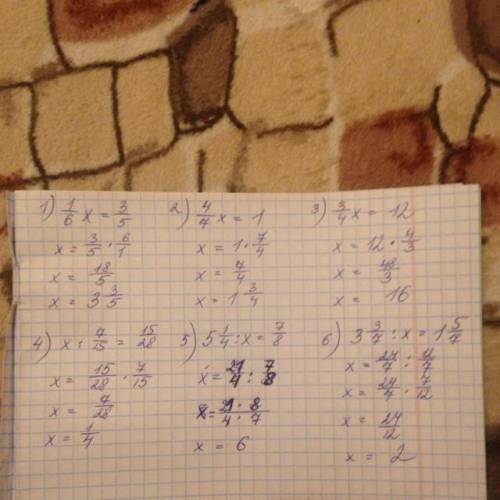 1) 1/6 x = 3/5
x = 3/5 · 6/1
x = 18/5
x = 3 3/5
2) 4/7 x = 1
x = 1 · 7/4
x = 7/4
x = 1 3/4
3) 3/4 x = 12
x = 12 · 4/3
x = 48/3
x = 16
4) x : 7/15 = 15/28
x = 15/28 · 7/15
x = 7/28
x = 1/4
5) 5 1/4 : x = 7/8
x = 21/4 : 7/8
x = 21 · 8/4 · 7
x = 6
6) 3 3/7 : x = 1 5/7
x = 24/7 : 12/7
x = 24/7 · 7/12
x = 24/12
x = 2